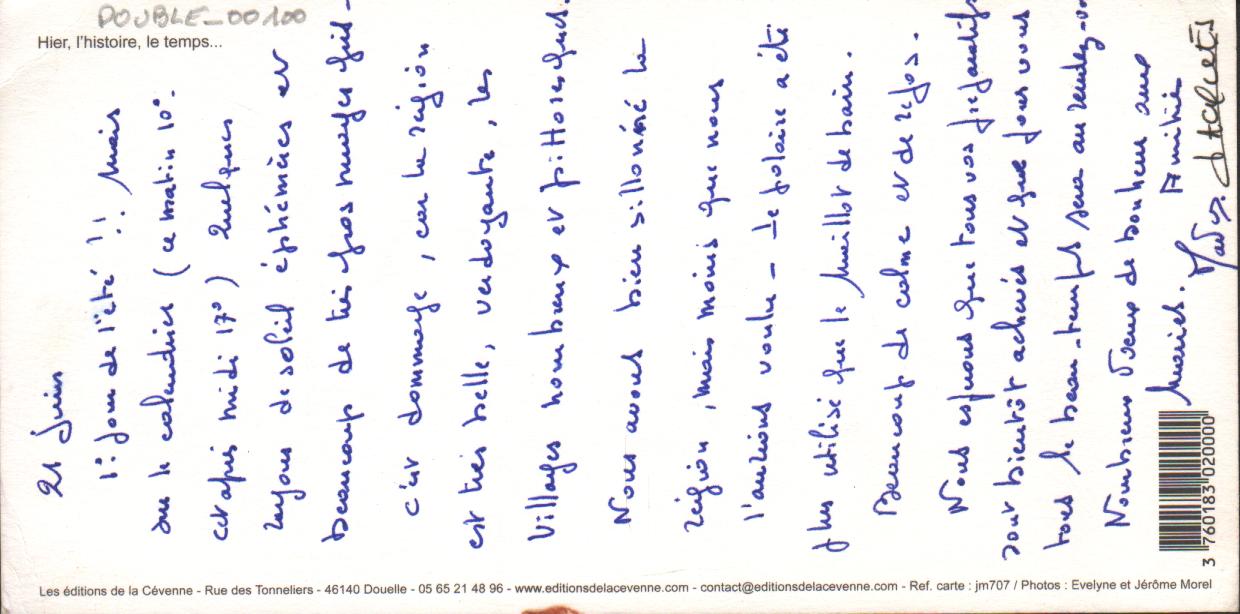 DOUBLE_00100
Hier, l'histoire, le temps...
21 Juin
1er jour de l'été !! Mais
sur le calendrier (ce matin 10°.
cet après midi 17°) Quelques
rayons de soleil éphémères et
beaucoup de très gros nuages gris -
c'est dommage, car la région
est très belle, verdoyante, les
Villages nombreux et pittoresques.
Nous avons bien sillonné la
région, mais moins que nous
l'aurions voulu - Le polaire a été
plus utilisé que le maillot de bain.
Beaucoup de calme et de repos.
Nous espérons que tous vos préparatifs
sont bientôt achevés et que pour vous
tous le beau-temps sera au rendez-vous
Nombreux voeux de bonheur aux
mariés. Amitiés
Les éditions de la Cévenne - Rue des Tonneliers - 46140 Douelle - 05 65 21 48 96 - www.editionsdelacevenne.com - contact@editionsdelacevenne.com - Ref. carte : jm707 / Photos : Evelyne et Jérôme Morel
3 760183 020000